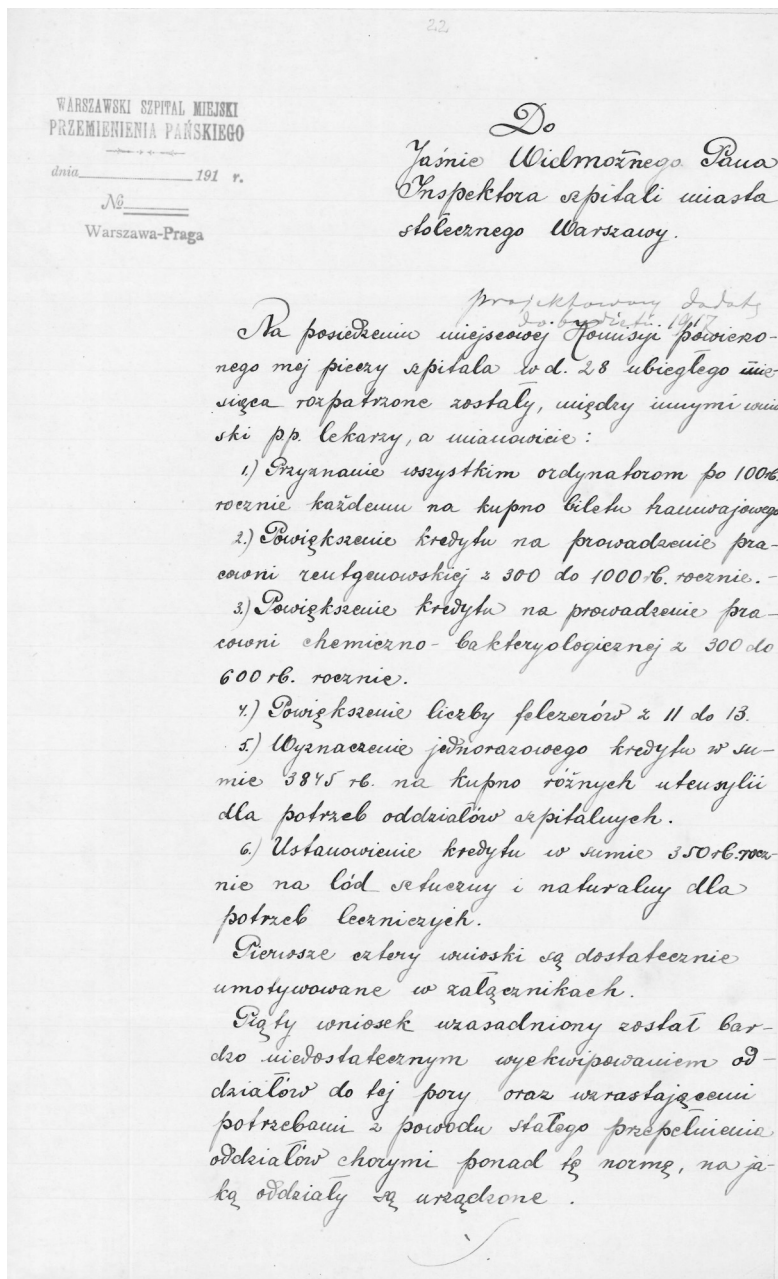 22
WARSZAWSKI SZPITAL MIEJSKI
PRZEMIENIENIA PAŃSKIEGO
dnia 191 r.
№
Warszawa-Praga
Do
Jaśnie Wielmożnego Pana
Inspektora szpitali miasta
stołecznego Warszawy.
projektowany dodatę
do 1917
Na posiedzeniu miejscowej Komisyi powierzo-
nego mej pieczy szpitala w d. 28 ubiegłego mie-
siąca rozpatrzone zostały, między innymi wnio
ski pp. lekarzy, a mianowicie:
1.) Przyznanie wszystkim ordynatorom po 100 rb.
rocznie każdemu na kupno biletu tramwajowego
2.) Powiększenie kredytu na prowadzenie pra-
cowni rentgenowskiej z 300 do 1000 rb. rocznie.-
3.) Powiększenie kredytu na prowadzenie pra-
cowni chemiczno-bakteryologicznej z 300 do
600 rb. rocznie.
4.) Powiększenie liczby felczerów z 11 do 13.
5.) Wyznaczenie jednorazowego kredytu w su-
mie 3845 rb. na kupno różnych utensylii
dla potrzeb oddziałów szpitalnych.
6.) Ustanowienie kredytu w sumie 350 rb. rocz-
nie na lód sztuczny i naturalny dla
potrzeb leczniczych.
Pierwsze cztery wnioski są dostatecznie
umotywowane w załącznikach.
Piąty wniosek uzasadniony został bar-
dzo niedostatecznym wyekwipowaniem od-
działów do tej pory oraz wzrastającemi
potrzebami z powodu stałego przepełnienia
oddziałów chorymi ponad tę normę, na ja-
ką oddziały są urządzone.